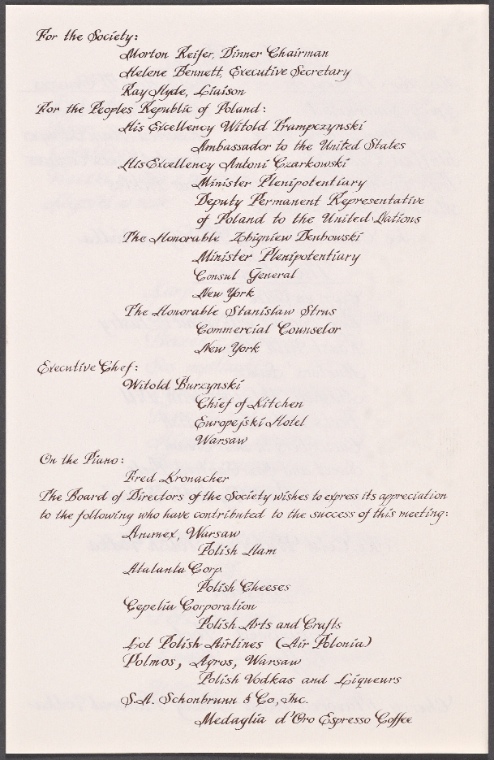 For the Society:
Morton Keifer, Dinner Chairman
Helene Bennett, Executive Secretary
Kay Hyde, Liaison
For the Peoples Republic of Poland:
His Excellency Witold Trampczynski
Ambassador to the United States
His Excellency Antoni Czarkowski
Minister Plenipotentiary
Deputy Permanent Representative
of Poland to the United Nations
The Honorable Zbigniew Dembowski
Minister Plenipotentiary
Consul General
New York
The Honorable Stanislaw Strus
Commercial Counselor
New York
Executive Chef:
Witold Burzynski
Chief of Kitchen
Europejski Hotel
Warsaw
On the Piano:
Fred Kronacher
The Board of Directors of the Society wishes to express its appreciation
to the following who have contributed to the success of this meeting:
Animex, Warsaw
Polish Ham
Atalanta Corp.
Polish Cheeses
Cepelia Corporation
Polish Arts and Crafts
Lot Polish Airlines (Air Polonia)
Polmos, Agros, Warsaw
Polish Vodkas and Liqueurs
S.A. Schonbrunn & Co, Inc.
Medaglia d'Oro Espresso Coffee